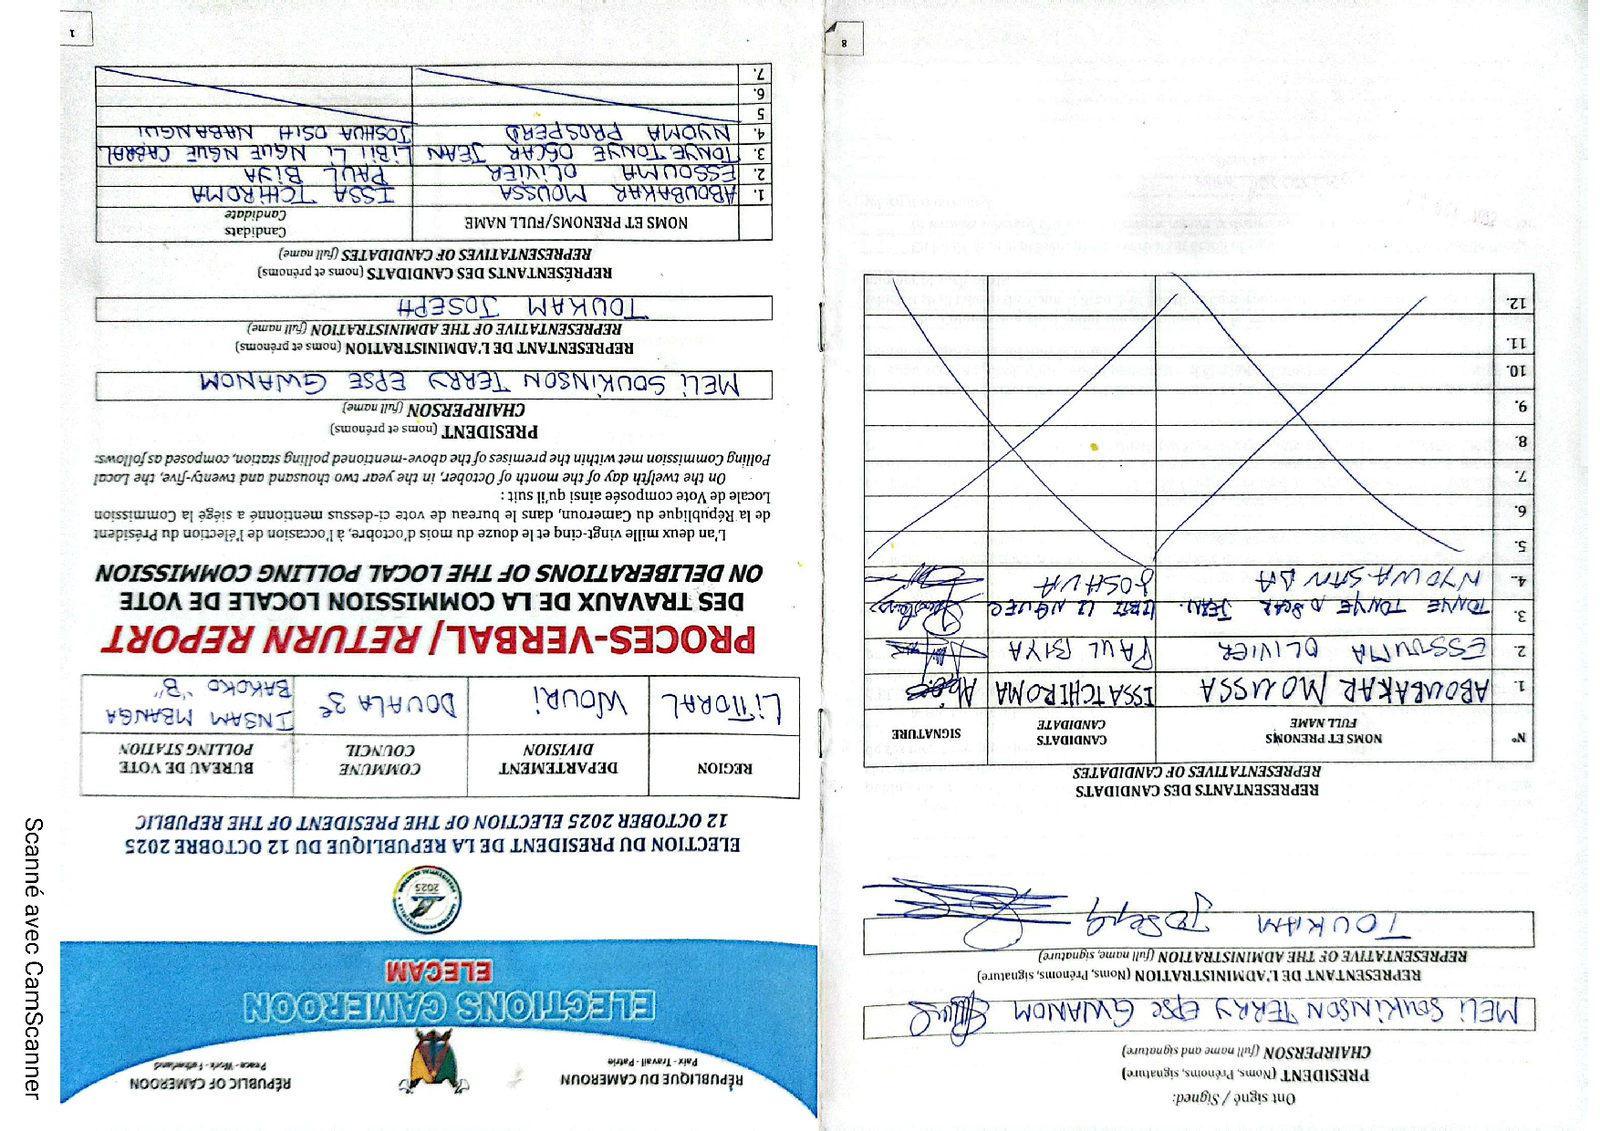 RÉPUBLIQUE DU CAMEROUN
Paix - Travail - Patrie
RÉPUBLIC OF CAMEROON
Peace - Work - Fatherland
ELECTIONS CAMEROON
ELECAM
2025
ELECTION DU PRESIDENT DE LA REPUBLIQUE DU 12 OCTOBRE 2025
12 OCTOBER 2025 ELECTION OF THE PRESIDENT OF THE REPUBLIC
REGION
DEPARTEMENT
DIVISION
COMMUNE
COUNCIL
BUREAU DE VOTE
POLLING STATION
LITTORAL
WOURI
DOUALA 3e
INSAM MBANGA
BAKOKO "B"
PROCES-VERBAL/ RETURN REPORT
DES TRAVAUX DE LA COMMISSION LOCALE DE VOTE
ON DELIBERATIONS OF THE LOCAL POLLING COMMISSION
L'an deux mille vingt-cinq et le douze du mois d'octobre, à l'occasion de l'élection du Président
de la République du Cameroun, dans le bureau de vote ci-dessus mentionné a siégé la Commission
Locale de Vote composée ainsi qu'il suit :
On the twelfth day of the month of October, in the year two thousand and twenty-five, the Local
Polling Commission met within the premises of the above-mentioned polling station, composed as follows:
PRESIDENT (noms et prénoms)
CHAIRPERSON (full name)
MELI SOUKINSON TERRY EPSE GWANOM
REPRESENTANT DE L'ADMINISTRATION (noms et prénoms)
REPRESENTATIVE OF THE ADMINISTRATION (full name)
TOUKAM JOSEPH
REPRÉSENTANTS DES CANDIDATS (noms et prénoms)
REPRESENTATIVES OF CANDIDATES (full name)
NOMS ET PRENOMS/FULL NAME
Candidats
Candidate
1. ABOUBAKAR MOUSSA ISSA TCHIROMA
2. ESSOUMA OLIVIER PAUL BIYA
3. TONYE TONYE OSCAR JEAN LIBII LI NGUE NGUE CABRAL
4. NYOMA PROSPERO JOSHUA OSIH NABANGUI
5
6.
7.
1
Ont signé / Signed:
PRESIDENT (Noms, Prénoms, signature)
CHAIRPERSON (full name and signature)
MELI SOUKINSON TERRY EPSE GWANOM
REPRESENTANT DE L'ADMINISTRATION (Noms, Prénoms, signature)
REPRESENTATIVE OF THE ADMINISTRATION (full name, signature)
TOUKAM JOSEPH
REPRESENTANTS DES CANDIDATS
REPRESENTATIVES OF CANDIDATES
N°
NOMS ET PRENOMS
FULL NAME
CANDIDATS
CANDIDATE
SIGNATURE
1. ABOUBAKAR MOUSSA ISSA TCHIROMA
2. ESSOUMA OLIVIER PAUL BIYA
3. TONYE TONYE OSCAR JEAN
4. JOSHUA
5.
6.
7.
8.
9.
10.
11.
12.
8
Scanné avec CamScanner